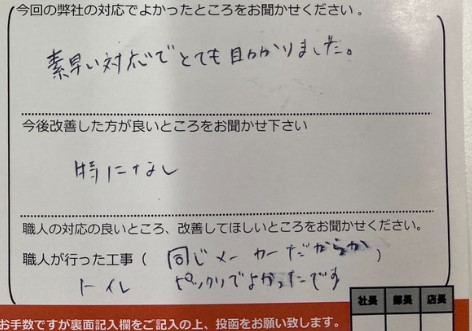 今回の弊社の対応でよかったところをお聞かせください。
素早い対応でとても助かりました。
今後改善した方が良いところをお聞かせ下さい
特になし
職人の対応の良いところ、改善してほしいところをお聞かせください。
職人が行った工事( 同じメーカーだからか )
トイレ ピックリでよかったです
社長 部長 店長
お手数ですが裏面記入欄をご記入の上、投函をお願い致します。